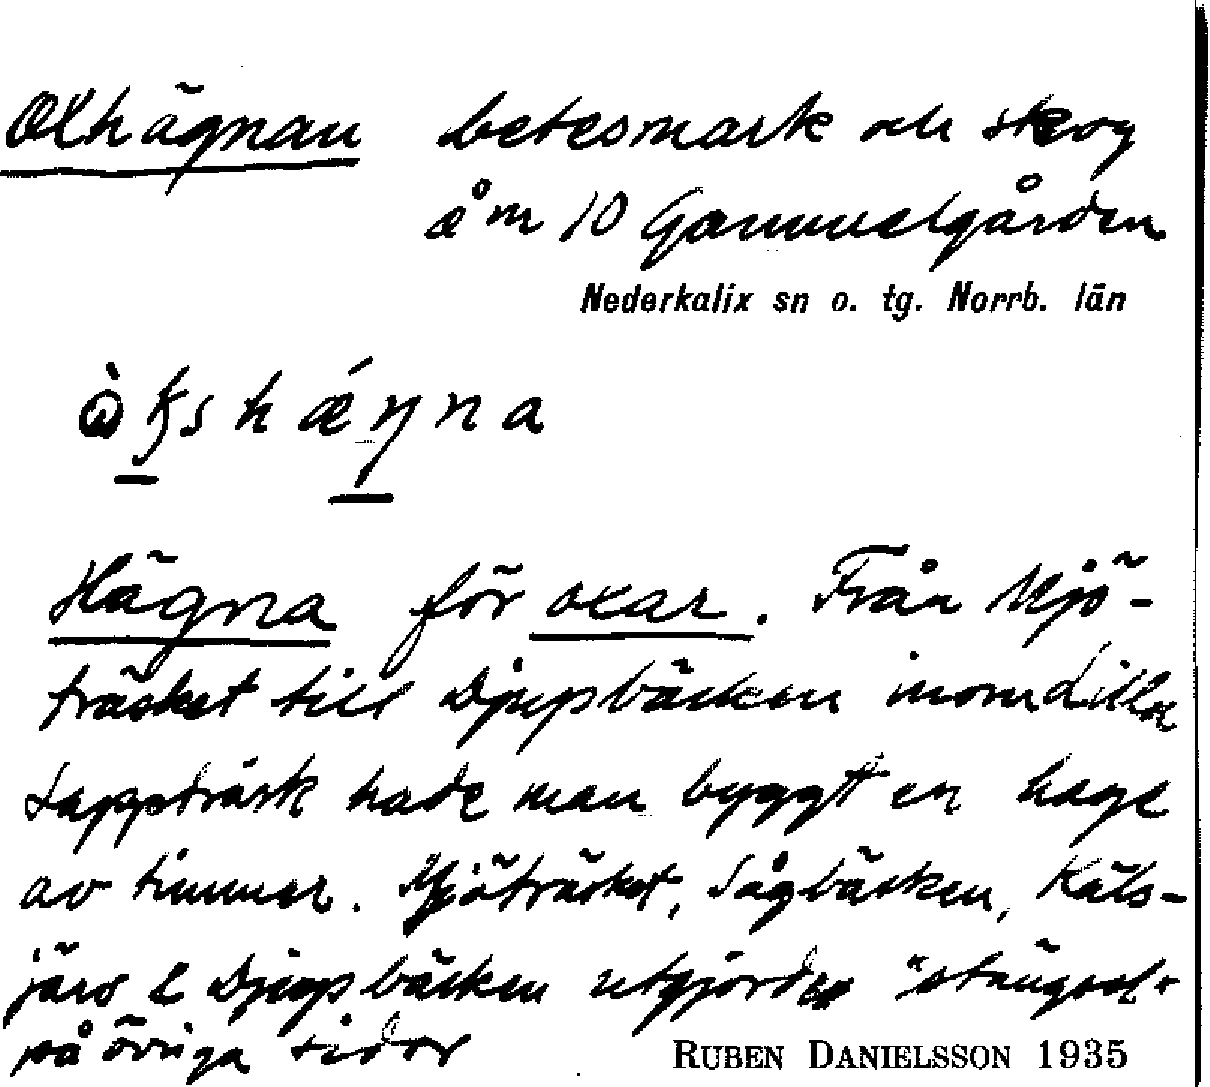 Oxhägnan betesmark och skog
å nr 10 Gammelgården
Nederkalix sn o. tg. Norrb. län
Hägna för oxar. Från Mjö-
träsket till Djupbäcken inom Lilla
Lappträsk hade man byggt en hage
av timmer. Mjöträsket, Sågbäcken, Käls-
järv & Djupbäcken utgjorde "stängsel"
på övriga sidor
RUBEN DANIELSSON 1935